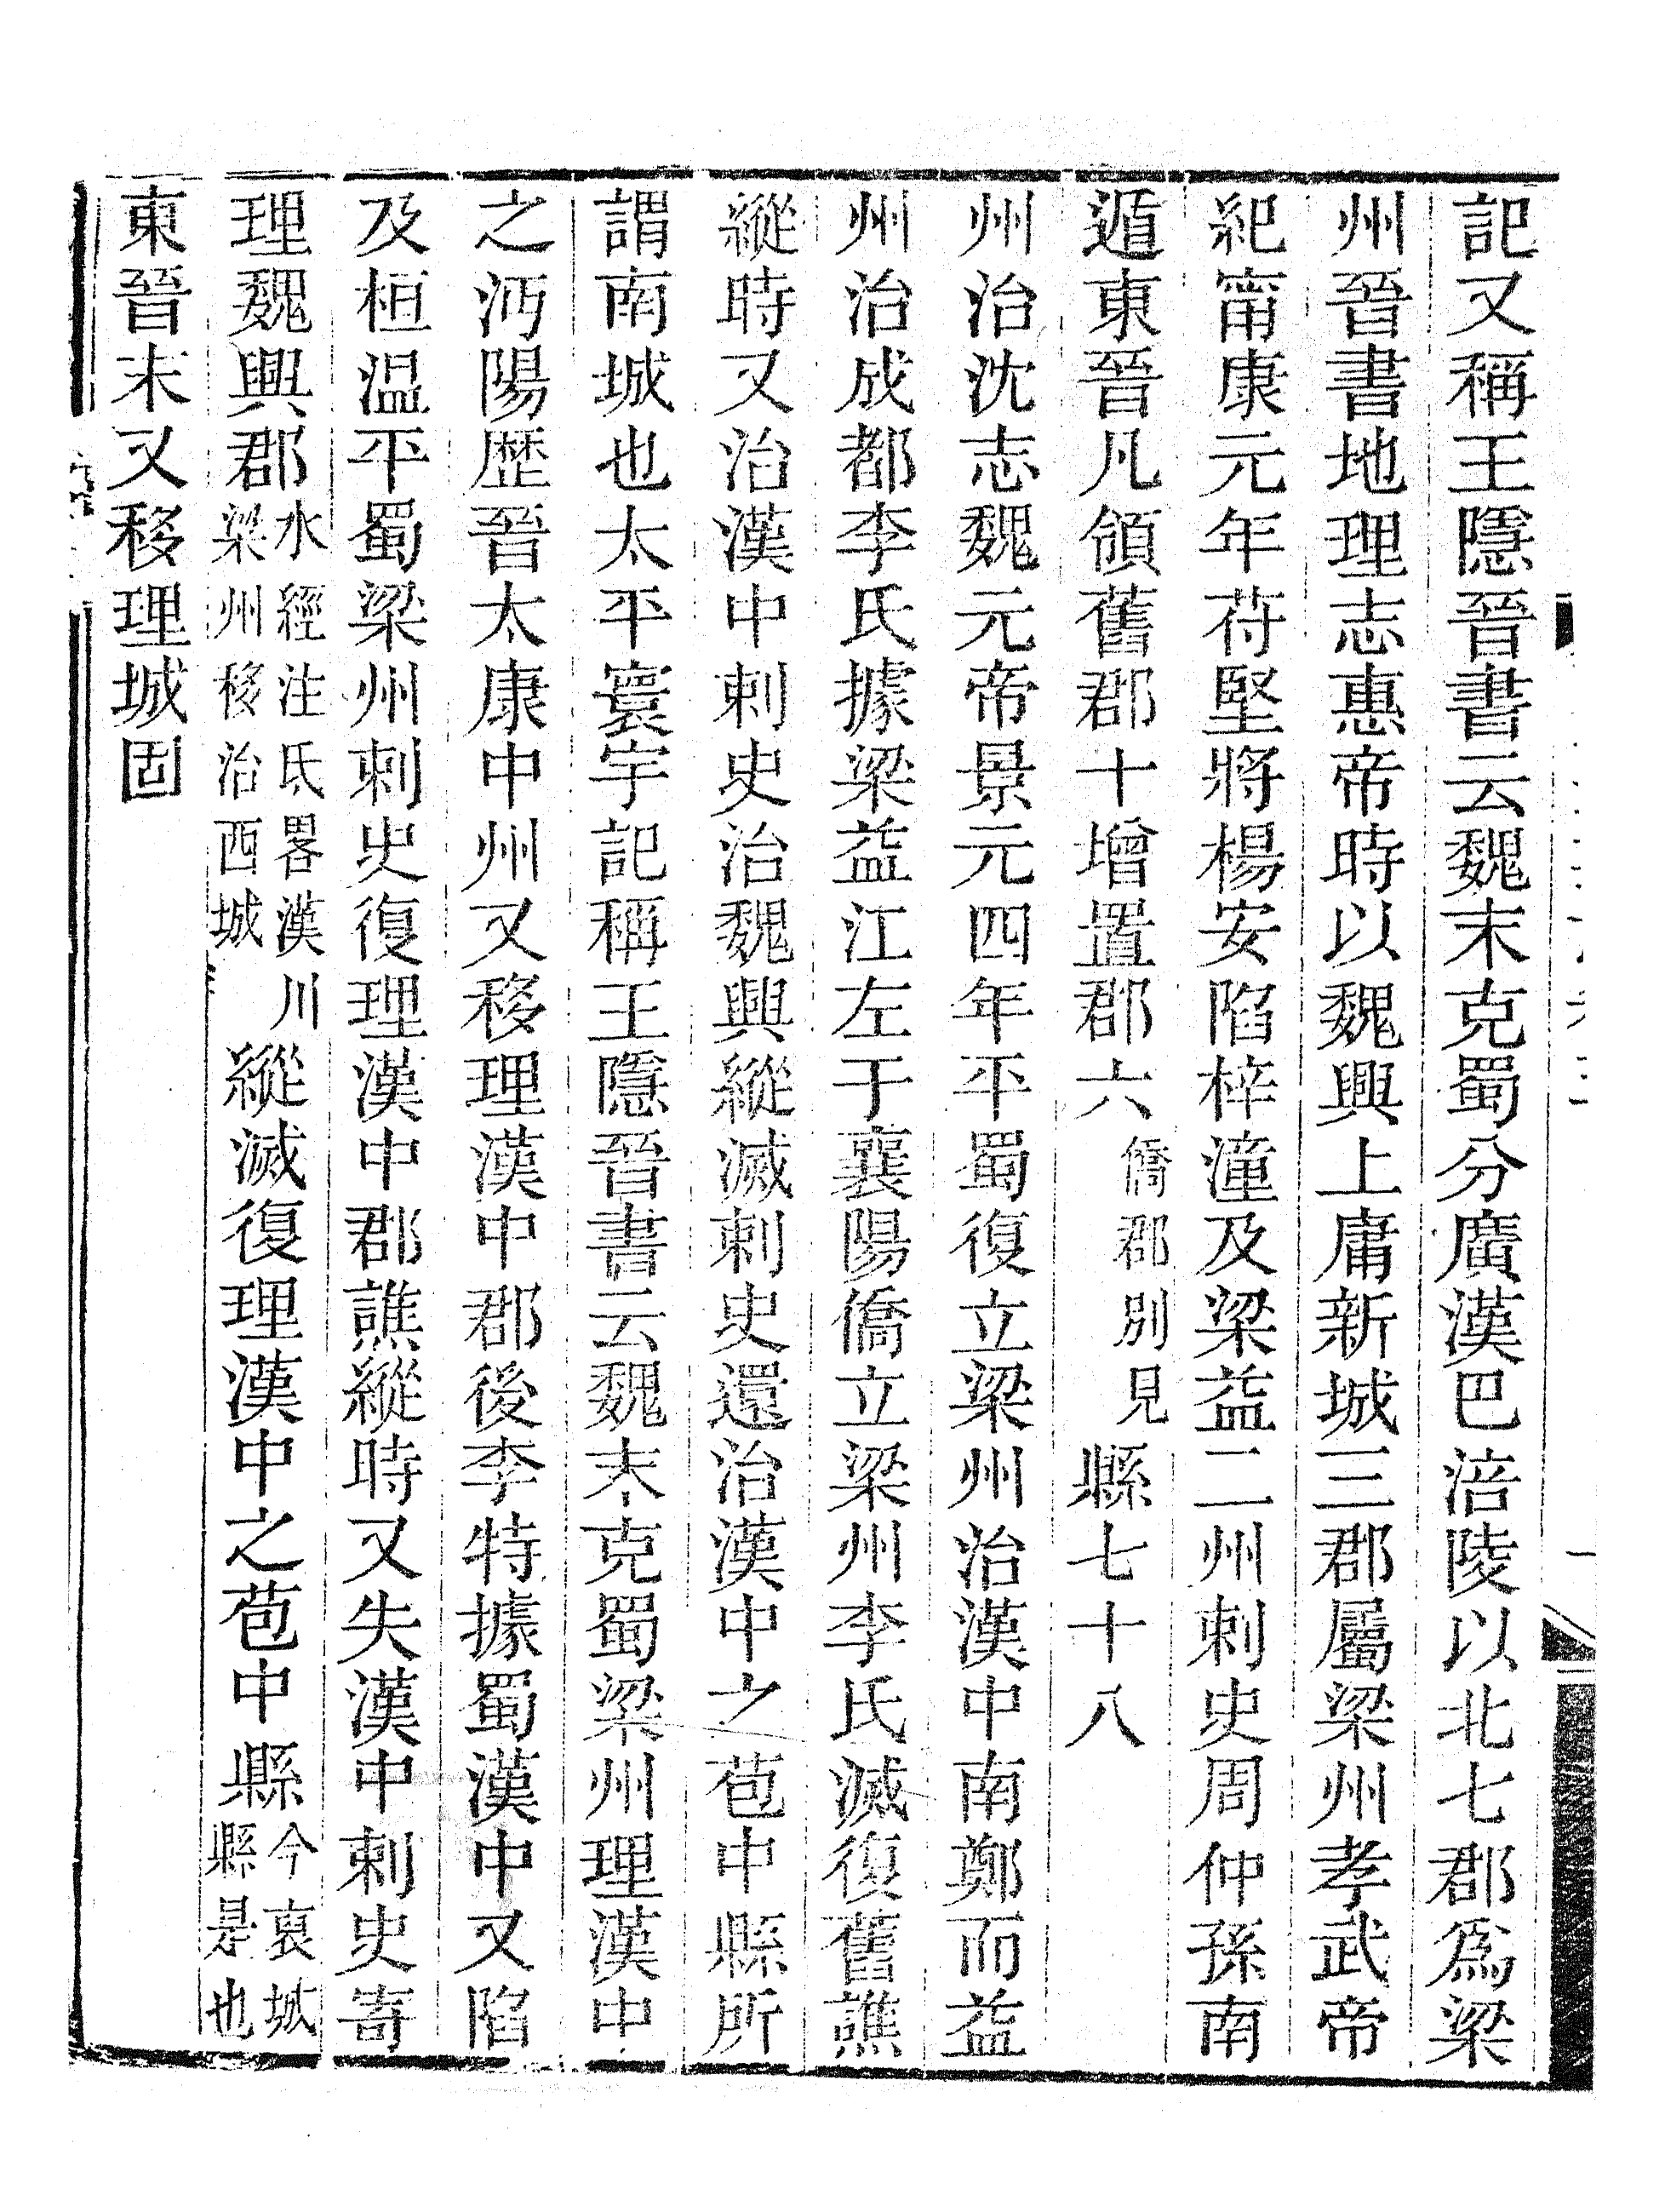 記又稱王隱晉書云魏末克蜀分廣漢巴涪陵以北七郡爲梁
州晉書地理志惠帝時以魏興上庸新城三郡屬梁州孝武帝
紀甯康元年苻堅將楊安陷梓潼及梁益二州刺史周仲孫南
遁東晉凡領舊郡十增置郡六僑郡別見縣七十八
州治沈志魏元帝景元四年平蜀復立梁州治漢中南鄭而益
州治成都李氏據梁益江左于襄陽僑立梁州李氏滅復舊譙
縱時又治漢中刺史治魏興縱滅刺史還治漢中之苞中縣所
謂南城也太平寰宇記稱王隱晉書云魏末克蜀梁州理漢中
之沔陽歷晉太康中州又移理漢中郡後李特據蜀漢中又陷
及桓温平蜀梁州刺史復理漢中郡譙縱時又失漢中刺史寄
理魏興郡水經注氐畧漢川梁州移治西城縱滅復理漢中之苞中縣今裒城縣是也
東晉末又移理城固